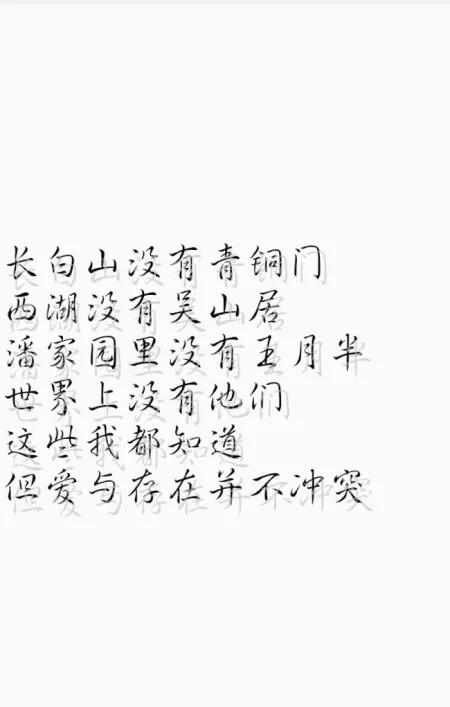 长白山没有青铜门
西湖没有吴山居
潘家园里没有王月半
世界上没有他们
这些我都知道
但爱与存在并不冲突